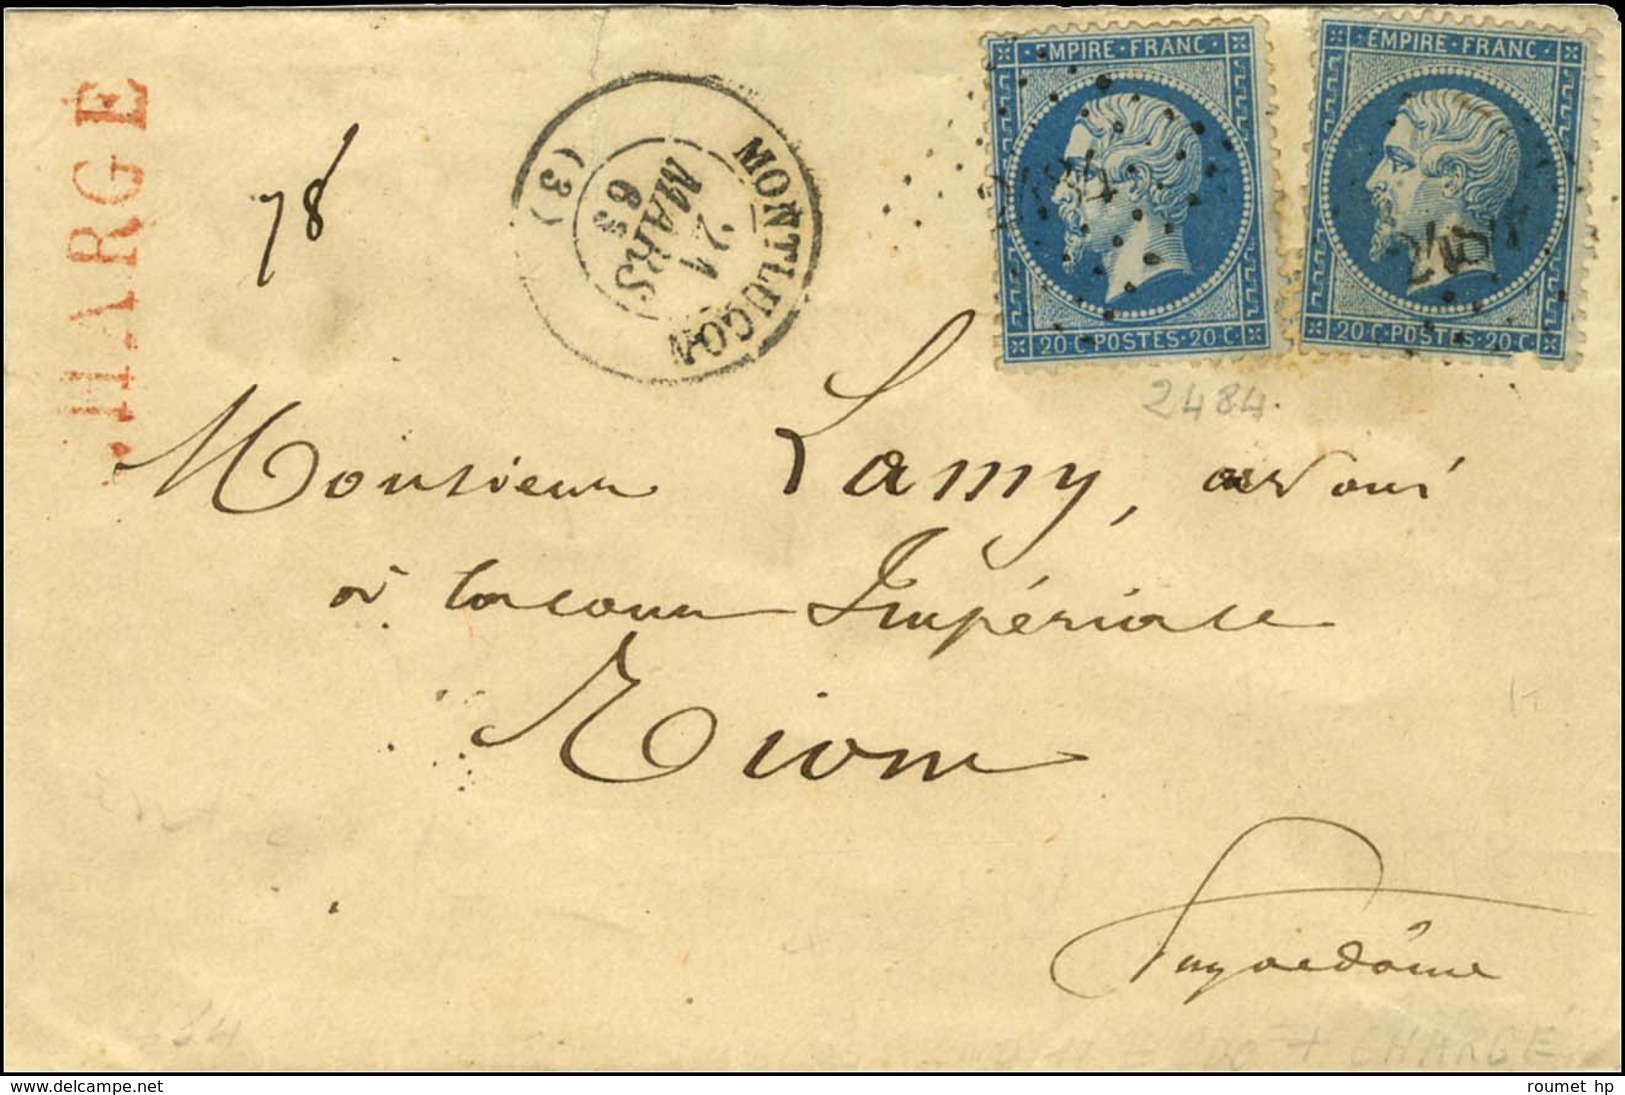 CHARGÉ
78
MONTLUÇON
21
MARS
63
(3)
EMPIRE · FRANC
20 · C POSTES · 20 · C
EMPIRE · FRANC
20 · C · POSTES · 20 · C
2484
2484
2484
Monsieur Lamy, avoué
à la cour Impériale
Riom
Puy de dôme
+ CHARGE
delcampe.net
roumet hp